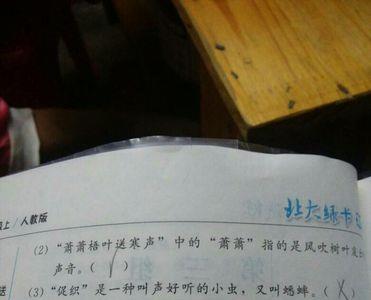 上/人教版
北大绿卡
(2)“萧萧梧叶送寒声”中的“萧萧”指的是风吹树叶发
声音。(√)
送
(3)“促织”是一种叫声好听的小虫，又叫蟋蟀。(X)